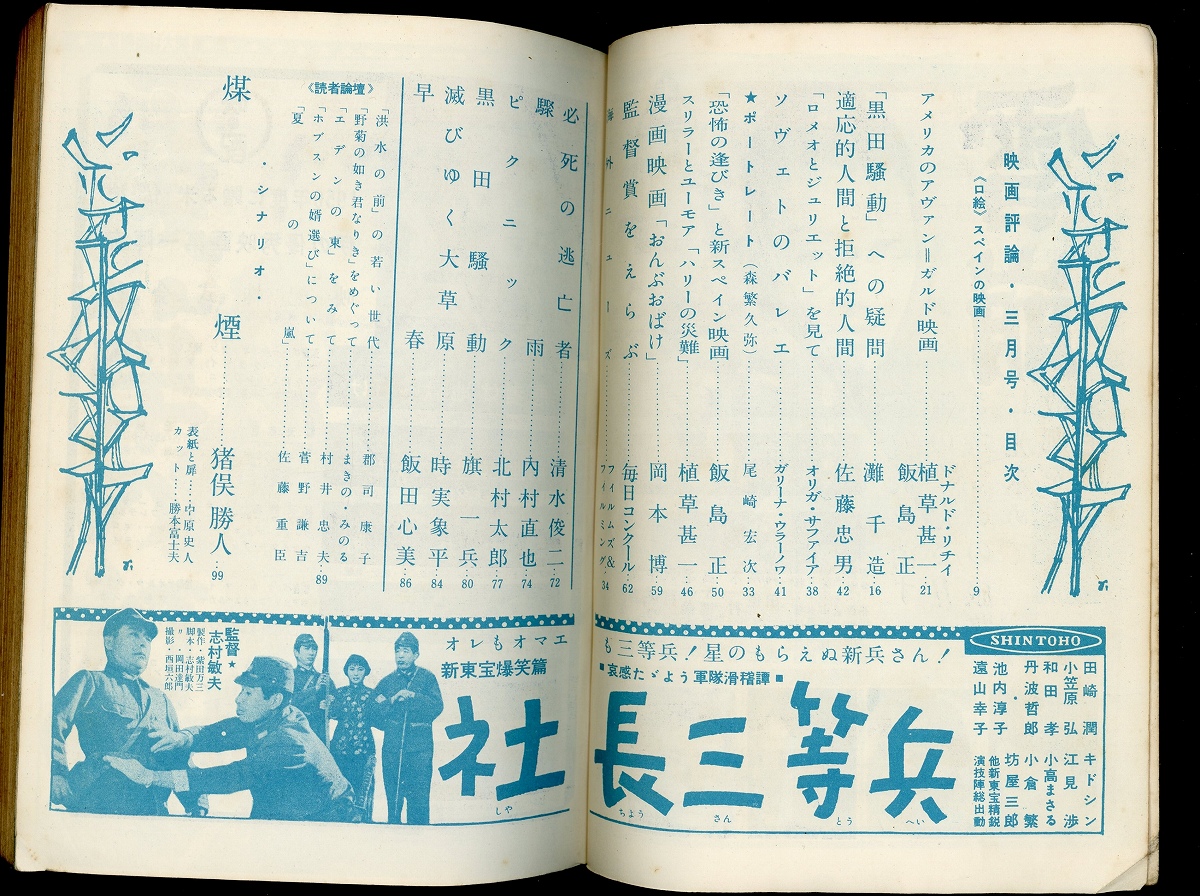 映画評論・三月号・目次
《口絵》スペインの映画……9
アメリカのアヴァン＝ガルド映画……ドナルド・リチイ 植草甚一 飯島正…21
「黒田騒動」への疑問……灘千造…16
適応的人間と拒絶的人間……佐藤忠男…42
「ロメオとジュリエット」を見て……オリガ・サファイア…38
ソヴェトのバレエ……ガリーナ・ウラーノワ…41
★ポートレート（森繁久弥）……尾崎宏次…33
「恐怖の逢びき」と新スペイン映画……飯島正…50
スリラーとユーモア「ハリーの災難」……植草甚一…46
漫画映画「おんぶおばけ」……岡本博…59
監督賞をえらぶ……毎日コンクール…62
海外ニューズ……フィルムズ&フィルミング…34
必死の逃亡者……清水俊二…72
驟雨……内村直也…74
ピクニック……北村太郎…77
黒田騒動……旗一兵…80
滅びゆく大草原……時実象平…84
早春……飯田心美…86
《読者論壇》
「洪水の前」の若い世代……郡司康子
「野菊の如き君なりき」をめぐって……まきの・みのる
「エデンの東」をみて……村井忠夫…89
「ホブスンの婿選び」について……菅野謙吉
「夏の嵐」……佐藤重臣
・シナリオ・
煤煙……猪俣勝人…99
表紙と扉……中原史人
カット……勝本富士夫
SHINTOHO
田崎潤
小笠原弘
和田孝
丹波哲郎
・
池内淳子
遠山幸子
キドシン
江見渉
小高まさる
小倉繁
坊屋三郎
他新東宝精鋭
演技陣総出動
オレもオマエも三等兵！星のもらえぬ新兵さん！
新東宝爆笑篇
■哀感たゞよう軍隊滑稽譚■
社長三等兵
しや ちよう さん とう へい
監督★志村敏夫
製作・柴田万三
脚本・志村敏夫
〃・岡田達門
撮影・西垣六郎